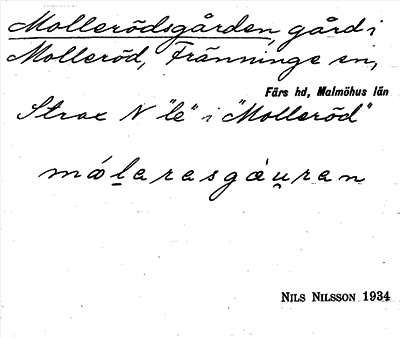 Mollerödsgården, gård i
Molleröd, Fränninge sn,
Färs hd, Malmöhus län
Strax N "le" i "Molleröd"
máḷarasgáu̯ran
NILS NILSSON 1934